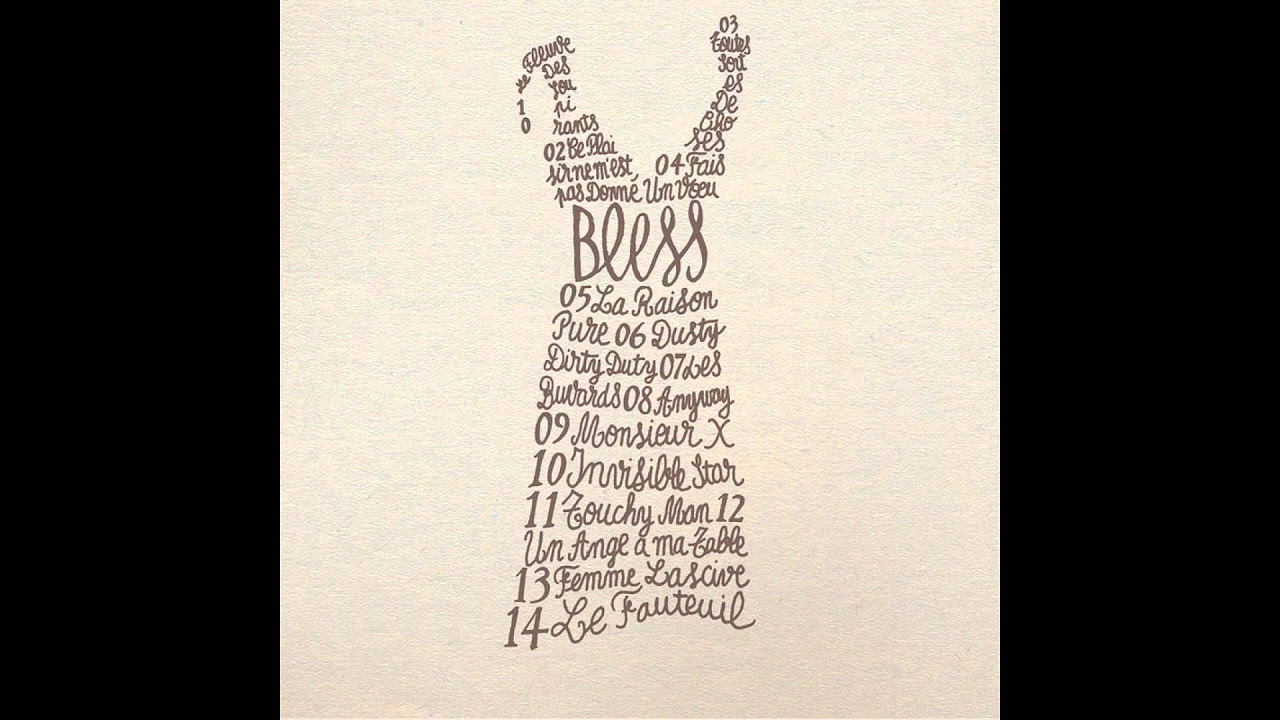 10 Le Fleuve
Des
sou
pi
rants
02 Ce Plai
sir ne m'est
pas Donné
03
Toutes
sort
es
De
Cho
ses
04 Fais
Un Vœu
Bless
05 La Raison
Pure 06 Dusty
Dirty Duty 07 Les
Buvards 08 Anyway
09 Monsieur X
10 Invisible Star
11 Touchy Man 12
Un Ange à ma Table
13 Femme Lascive
14 Le Fauteuil